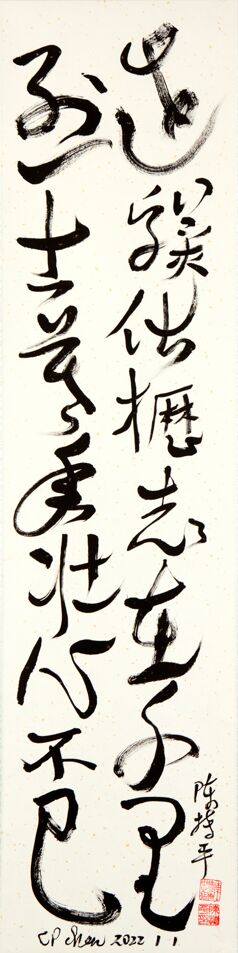 老驥伏櫪志在千里
烈士暮年壮心不已
陈持平
CP Chen 2022 1 1